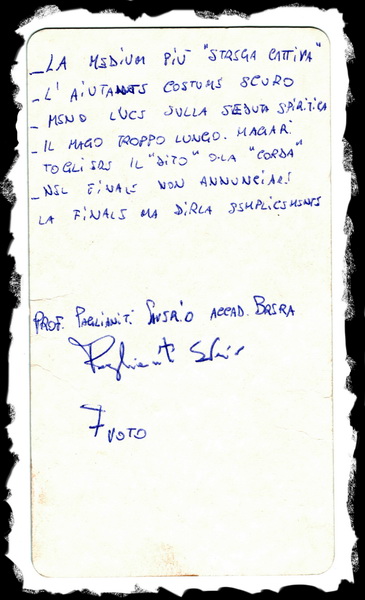 - LA MEDIUM PIÙ "STREGA CATTIVA"
- L'AIUTANTE COSTUME SCURO
- MENO LUCE SULLA SEDUTA SPIRITICA
- IL MAGO TROPPO LUNGO. MAGARI
TOGLIERE IL "DITO" O LA "CORDA"
- NEL FINALE NON ANNUNCIARE
LA FINALE MA DIRLA SEMPLICEMENTE
PROF. PAGLIANITI SAVERIO ACCAD. BRERA
7 VOTO